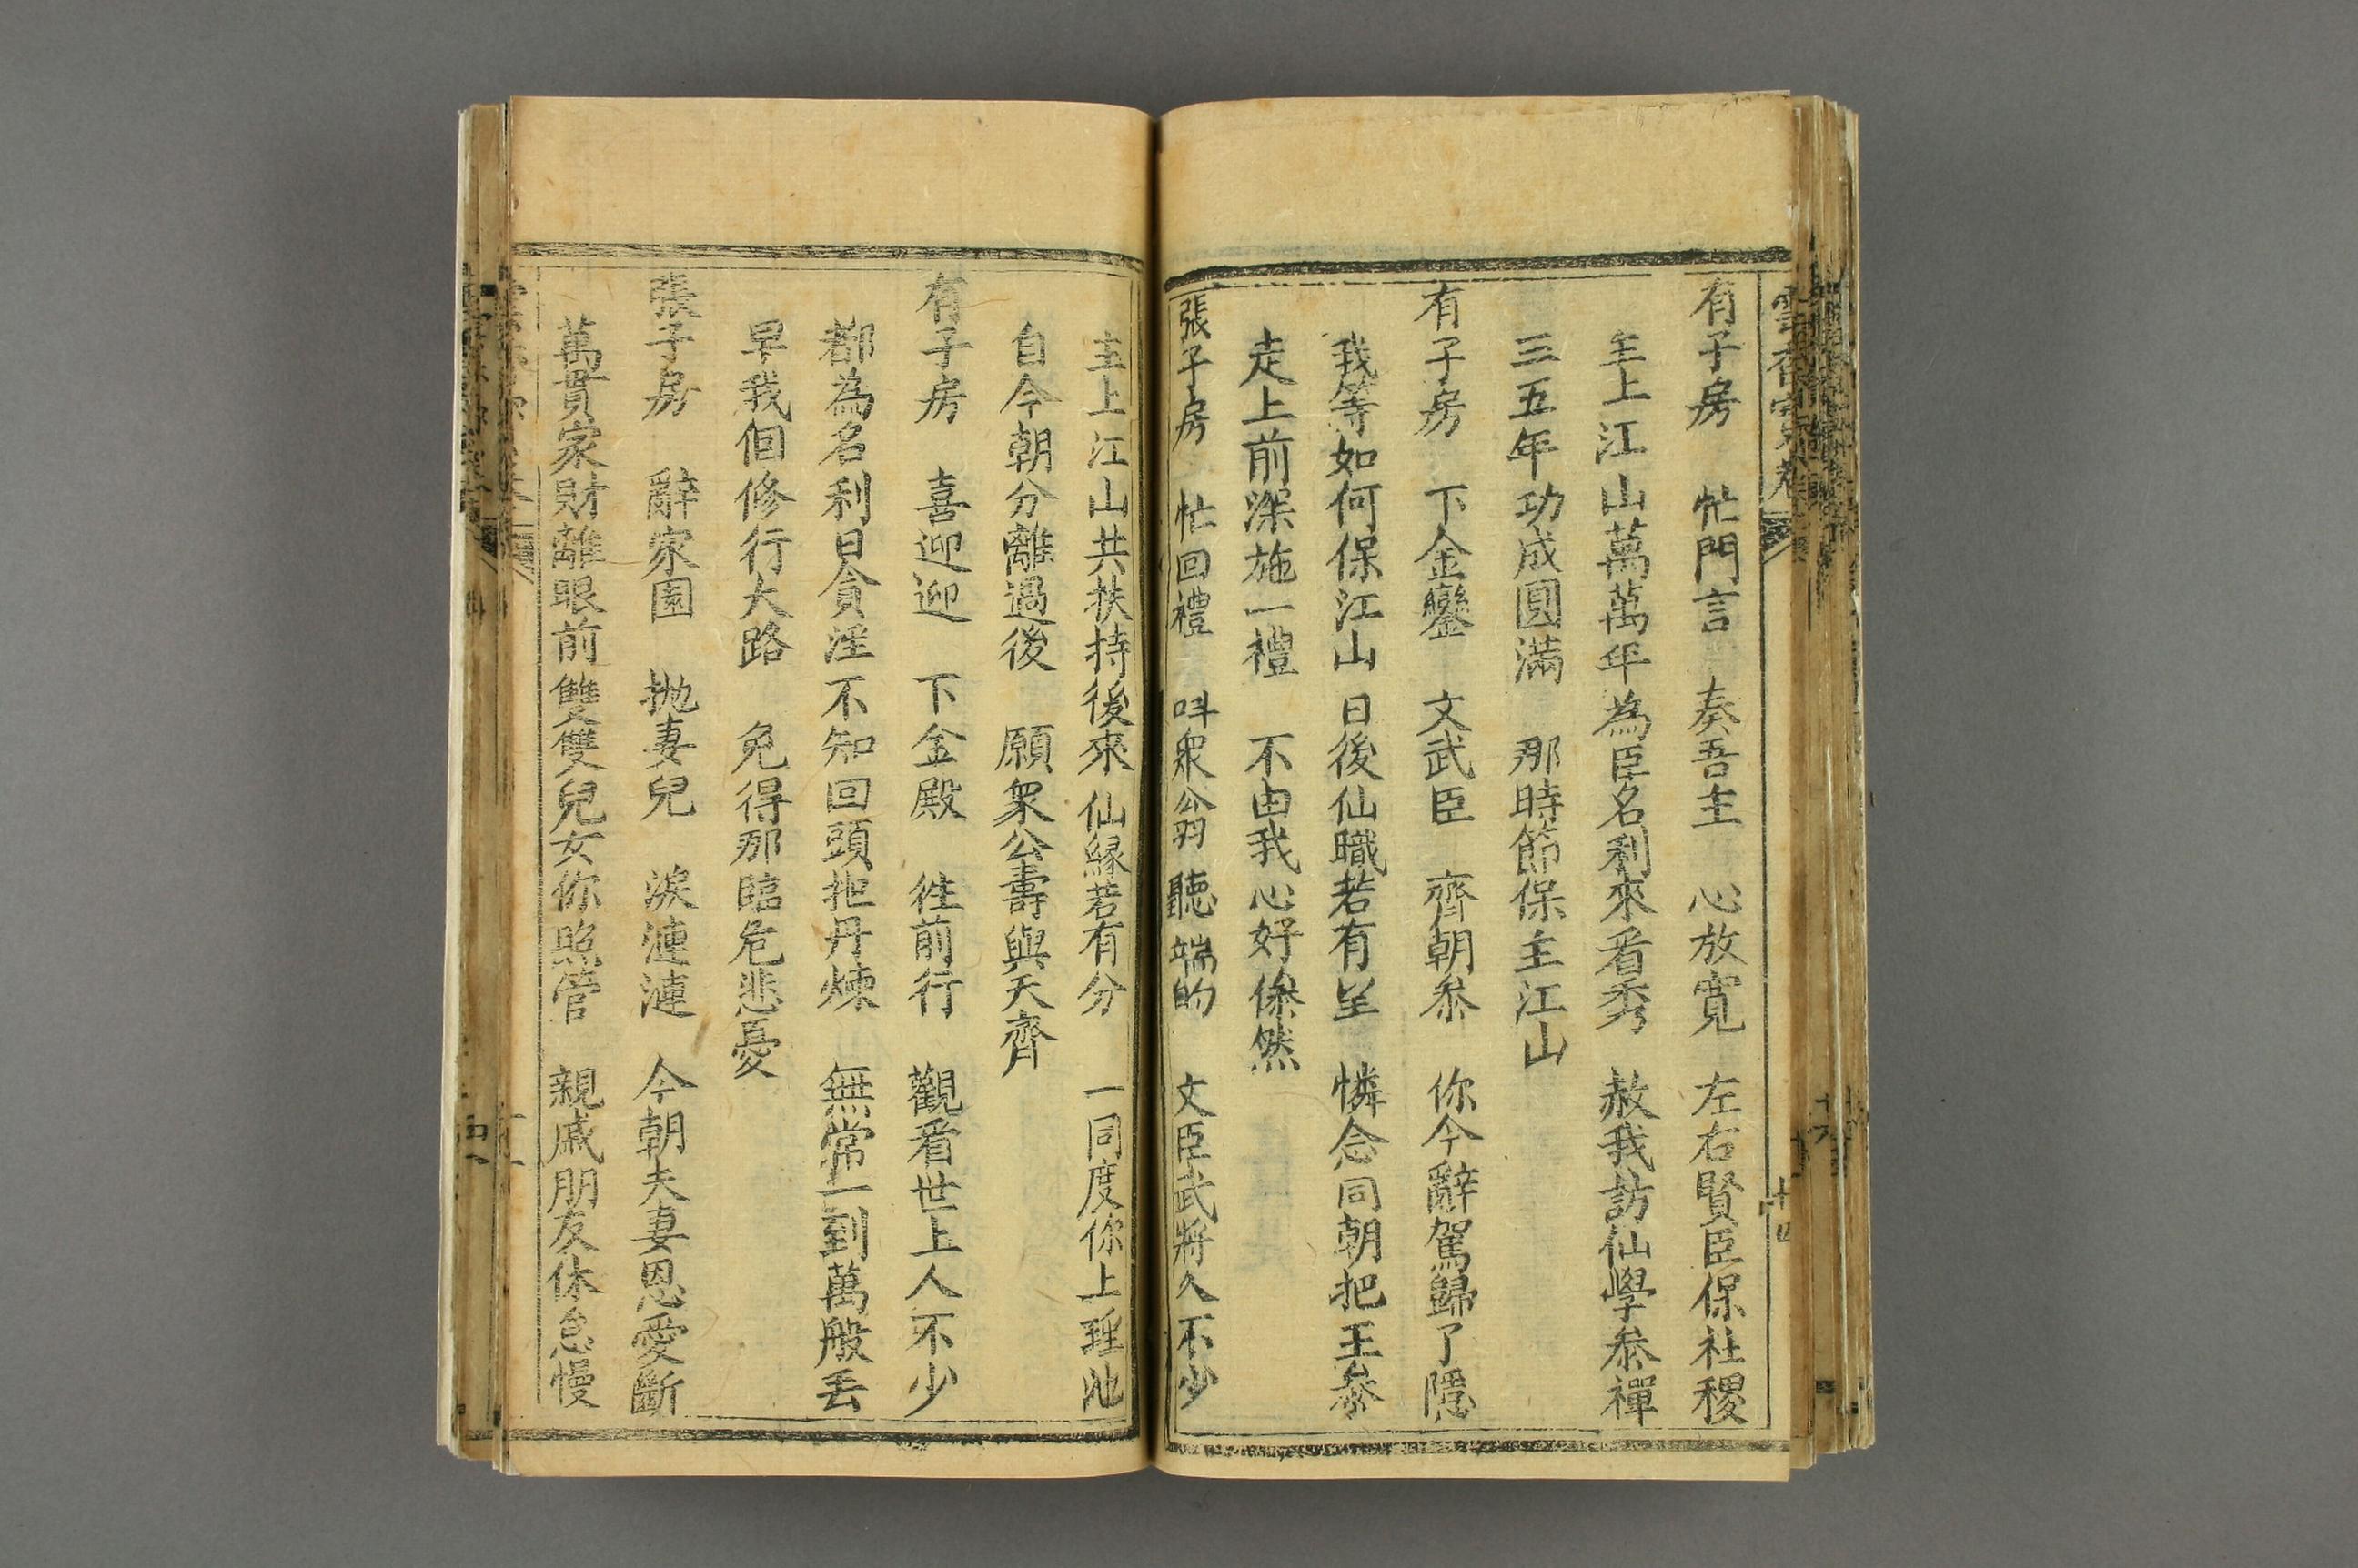 有子房 忙門言 奏吾主 心放寬 左右賢臣保社稷
主上江山萬萬年為臣名利來看秀 赦我訪仙學叅禪
三五年功成圓滿 那時節保主江山
有子房 下金鑾 文武臣 齊朝叅 你今辭駕歸了隱
我等如何保江山 日後仙職若有呈 憐念同朝把王叅
走上前深施一禮 不由我心好傷然
張子房 忙回禮 呌衆公翁 聽端的 文臣武將久不少
主上江山共扶持後來 仙緣若有分 一同度你上瑶池
自今朝分離過後 願衆公壽與天齊
有子房 喜迎迎 下金殿 徃前行 觀看世上人不少
都為名利日貪淫 不知回頭把丹煉 無常一到萬般丟
早我個修行大路 免得那臨危悲憂
張子房 辭家園 抛妻兒 淚漣漣 今朝夫妻恩愛斷
萬貫家財離眼前 雙雙兒女你照管 親戚朋友休怠慢
十四